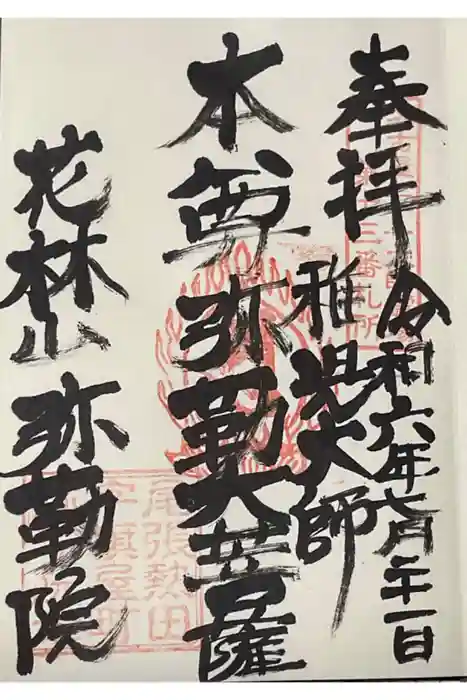 奉拝
令和六年七月二十一日
三番札所
稚児大師
本尊
弥勒大菩薩
花林山
弥勒院
尾張熱田